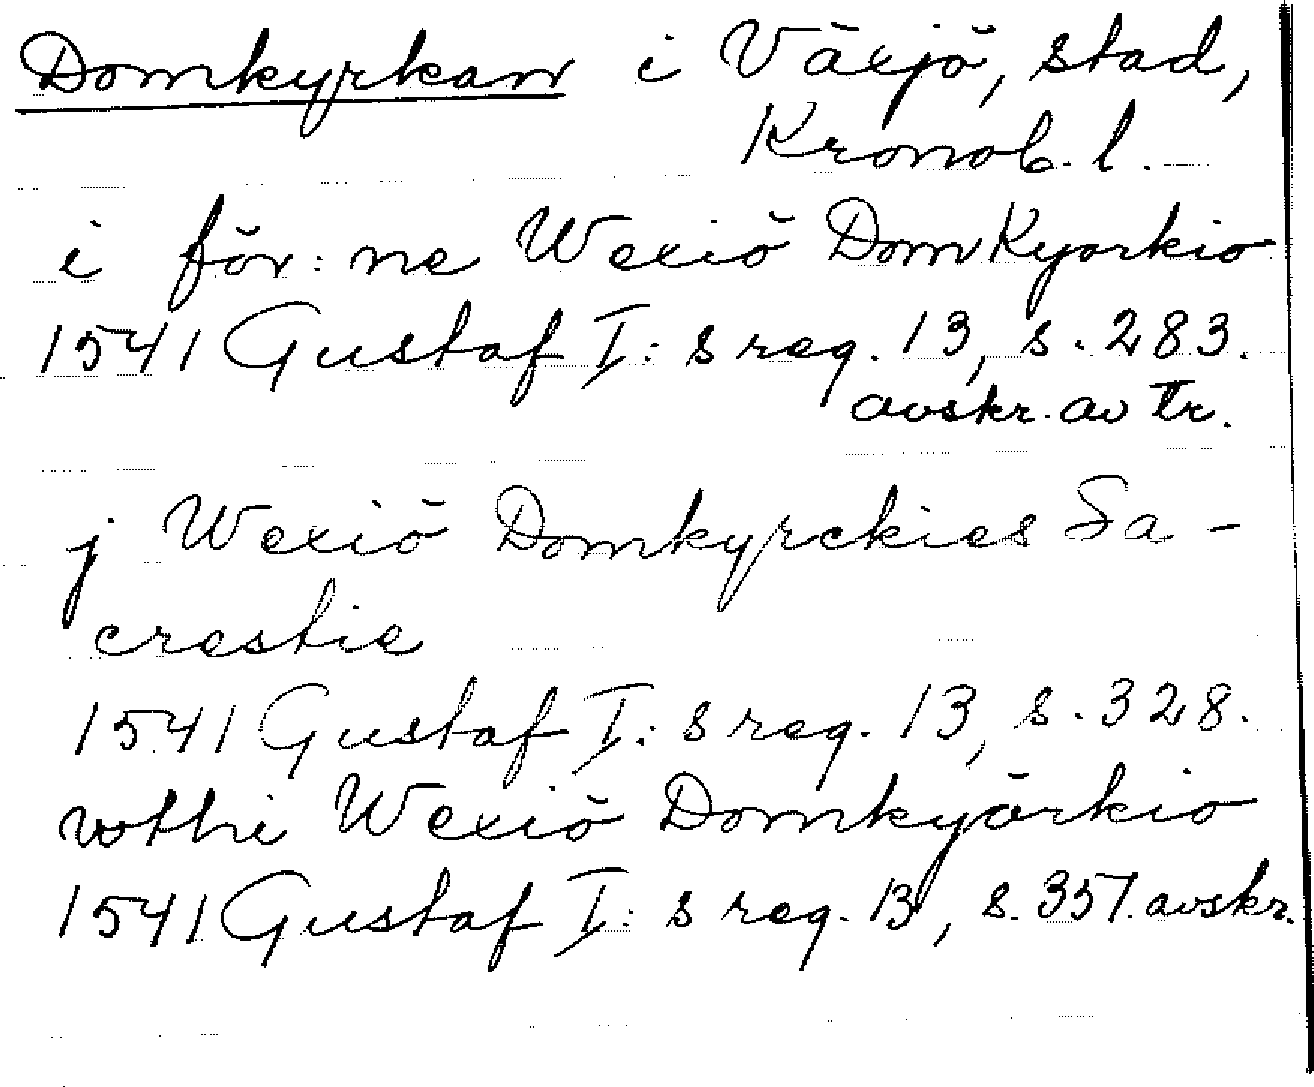 Domkyrkan i Växjö, stad,
Kronob. l.
i för: ne Wexiö DomKyorkio
1541 Gustaf I: s reg. 13, s. 283.
avskr. av tr.
j Wexiö Domkyrckies Sa-
crestie
1541 Gustaf I: s reg. 13, s. 328.
wthi Wexiö Domkyörkio
1541 Gustaf I: s reg. 13, s. 357. avskr.